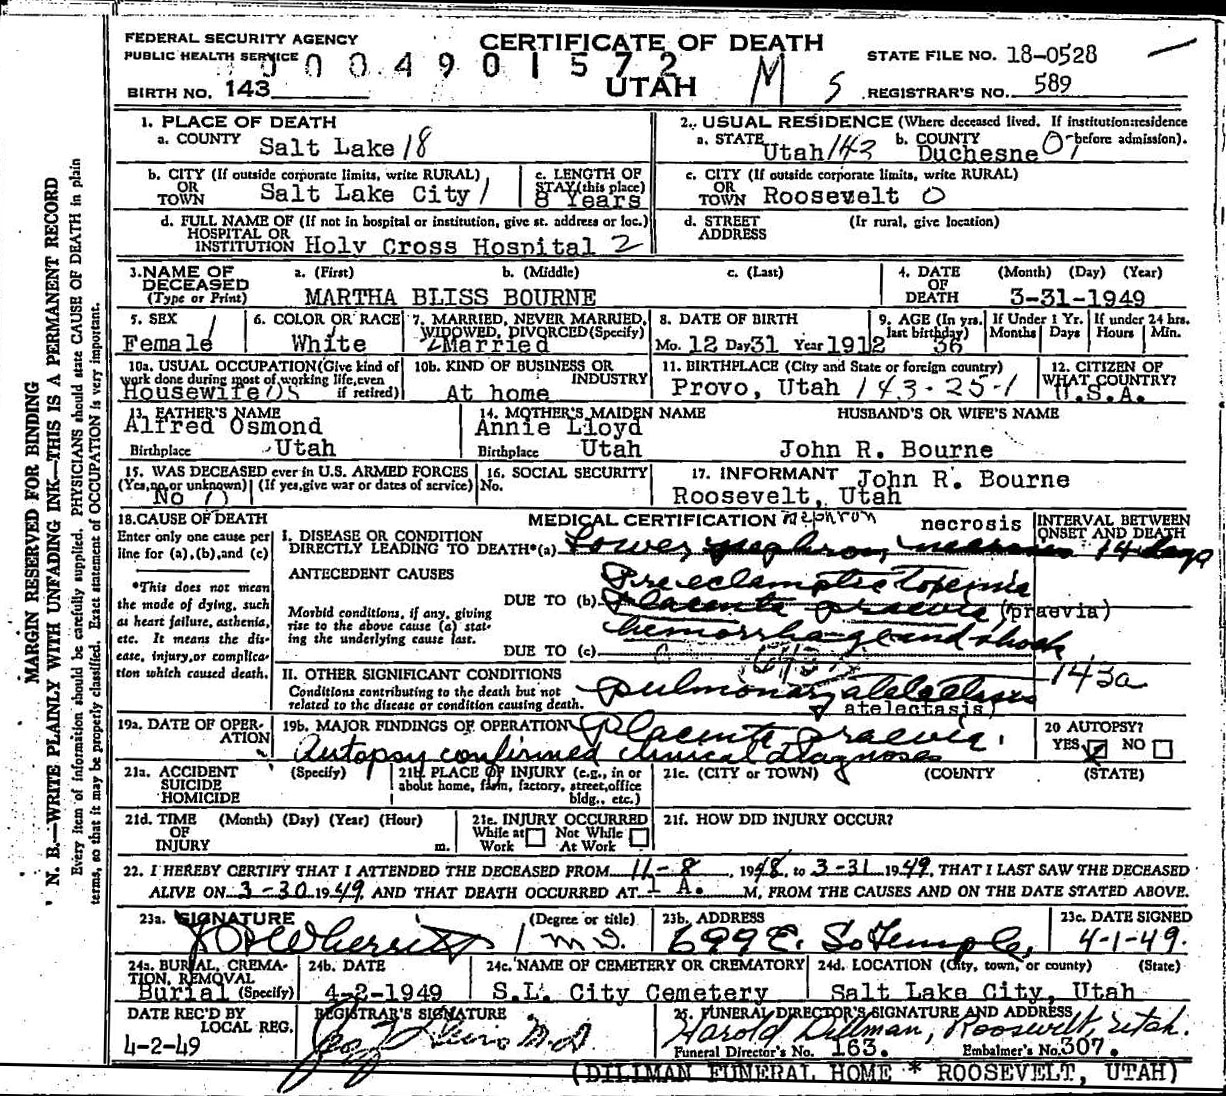 FEDERAL SECURITY AGENCY
PUBLIC HEALTH SERVICE
CERTIFICATE OF DEATH
UTAH
0004901572
M S
STATE FILE NO. 18-0528
BIRTH NO. 143
REGISTRAR'S NO. 589
1. PLACE OF DEATH
a. COUNTY Salt Lake 18
2. USUAL RESIDENCE (Where deceased lived. If institution:residence before admission).
a. STATE Utah 143 b. COUNTY Duchesne 01
b. CITY (If outside corporate limits, write RURAL)
OR TOWN Salt Lake City 1
c. LENGTH OF STAY (this place)
8 Years
c. CITY (If outside corporate limits, write RURAL)
OR TOWN Roosevelt 0
d. FULL NAME OF (If not in hospital or institution, give st. address or loc.)
HOSPITAL OR INSTITUTION Holy Cross Hospital 2
d. STREET ADDRESS (If rural, give location)
3. NAME OF DECEASED (Type or Print)
a. (First) b. (Middle) c. (Last)
MARTHA BLISS BOURNE
4. DATE OF DEATH (Month) (Day) (Year)
3-31-1949
5. SEX
Female 1
6. COLOR OR RACE
White
7. MARRIED, NEVER MARRIED, WIDOWED, DIVORCED (Specify)
2 Married
8. DATE OF BIRTH
Mo. 12 Day 31 Year 1912
9. AGE (In yrs. last birthday) 36
If Under 1 Yr. Months Days
If under 24 hrs. Hours Min.
10a. USUAL OCCUPATION (Give kind of work done during most of working life, even if retired)
Housewife 05
10b. KIND OF BUSINESS OR INDUSTRY
At home
11. BIRTHPLACE (City and State or foreign country)
Provo, Utah 143-25-1
12. CITIZEN OF WHAT COUNTRY?
U.S.A.
13. FATHER'S NAME
Alfred Osmond
Birthplace Utah
14. MOTHER'S MAIDEN NAME
Annie Lloyd
Birthplace Utah
HUSBAND'S OR WIFE'S NAME
John R. Bourne
15. WAS DECEASED ever in U.S. ARMED FORCES
(Yes, no, or unknown) (If yes, give war or dates of service)
No 0
16. SOCIAL SECURITY No.
17. INFORMANT John R. Bourne
Roosevelt, Utah
18. CAUSE OF DEATH
Enter only one cause per line for (a), (b), and (c)
*This does not mean the mode of dying, such as heart failure, asthenia, etc. It means the disease, injury, or complication which caused death.
MEDICAL CERTIFICATION nephron necrosis
INTERVAL BETWEEN ONSET AND DEATH
I. DISEASE OR CONDITION
DIRECTLY LEADING TO DEATH*(a) Lower nephron necrosis 14 days
ANTECEDENT CAUSES
Pre eclamptic toxemia
Morbid conditions, if any, giving rise to the above cause (a) stating the underlying cause last.
DUE TO (b) Placenta praevia (praevia)
hemorrhage and shock
DUE TO (c)
II. OTHER SIGNIFICANT CONDITIONS
Conditions contributing to the death but not related to the disease or condition causing death.
143a
pulmonary atelectasis
atelectasis)
19a. DATE OF OPERATION
19b. MAJOR FINDINGS OF OPERATION Placenta praevia.
Autopsy confirmed clinical diagnoses
20 AUTOPSY?
YES NO
21a. ACCIDENT SUICIDE HOMICIDE (Specify)
21b. PLACE OF INJURY (e.g., in or about home, farm, factory, street, office bldg., etc.)
21c. (CITY OR TOWN) (COUNTY) (STATE)
21d. TIME OF INJURY (Month) (Day) (Year) (Hour) m.
21e. INJURY OCCURRED
While at Work Not While At Work
21f. HOW DID INJURY OCCUR?
22. I HEREBY CERTIFY THAT I ATTENDED THE DECEASED FROM 11-8, 1948, to 3-31 1949, THAT I LAST SAW THE DECEASED
ALIVE ON 3-30 1949, AND THAT DEATH OCCURRED AT 1 A. M, FROM THE CAUSES AND ON THE DATE STATED ABOVE.
23a. SIGNATURE (Degree or title)
M.D.
23b. ADDRESS
699 E. So Temple,
23c. DATE SIGNED
4-1-49.
24a. BURIAL, CREMATION, REMOVAL
Burial (Specify)
24b. DATE
4-2-1949
24c. NAME OF CEMETERY OR CREMATORY
S.L. City Cemetery
24d. LOCATION (City, town, or county) (State)
Salt Lake City, Utah
DATE REC'D BY LOCAL REG.
4-2-49
REGISTRAR'S SIGNATURE
M.D.
25. FUNERAL DIRECTOR'S SIGNATURE AND ADDRESS
Harold Dillman, Roosevelt, Utah.
Funeral Director's No. 163. Embalmer's No. 307.
(DILLMAN FUNERAL HOME * ROOSEVELT, UTAH)
MARGIN RESERVED FOR BINDING
N. B.—WRITE PLAINLY WITH UNFADING INK—THIS IS A PERMANENT RECORD
Every item of information should be carefully supplied. PHYSICIANS should state CAUSE OF DEATH in plain
terms, so that it may be properly classified. Exact statement of OCCUPATION is very important.